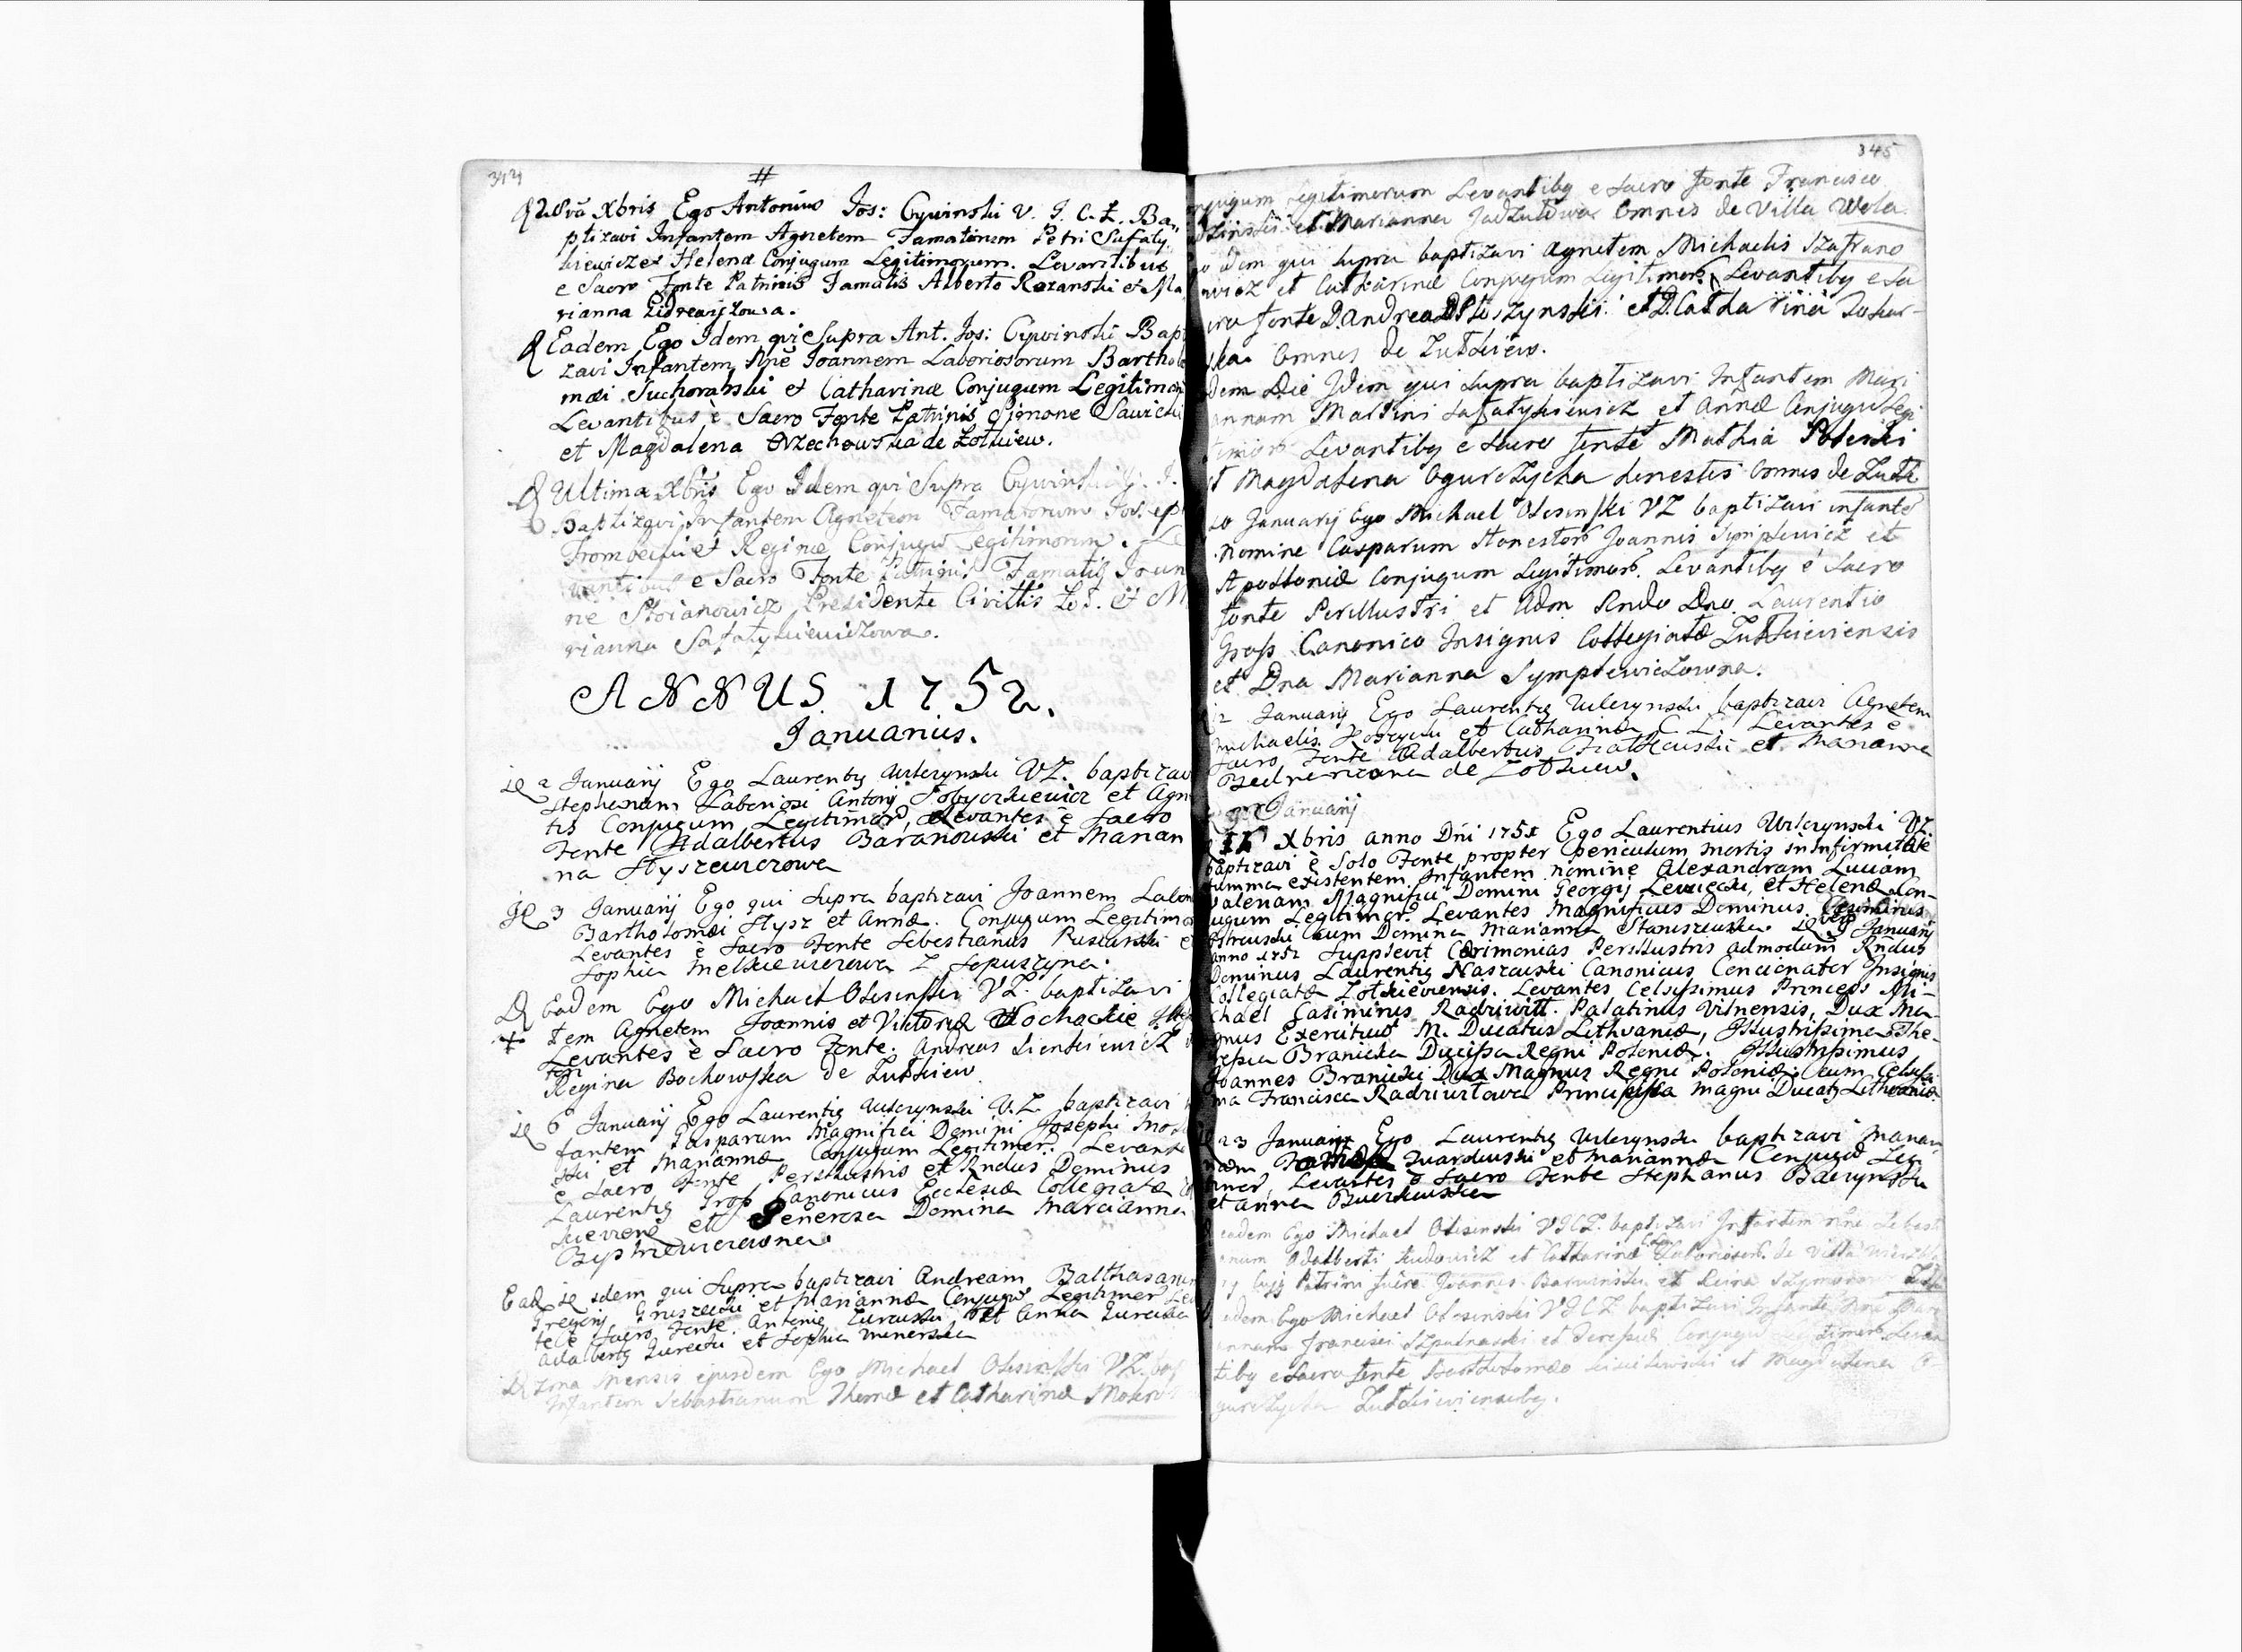 344
#
28va Xbris Ego Antonius Jos: Cywinski V. J. C. Ż. Ba„
ptizavi Infantem Agnetem Famatorum Petri Sufaty
kiewicz et Helenæ Conjugum Legitimorum. Levantibus
e Sacro Fonte Patrinis Famatis Alberto Rozanski et Ma
rianna
Eadem Ego Idem qui Supra Ant. Jos: Cywinski Bapt
zavi Infantem Nñe Joannem Laboriosorum Barthol
mæi Suchoralski et Catharinæ Conjugum Legitimor
Levantibus è Sacro Fonte Patrinis Simone Savicki
et Magdalena Orzechowska de Żołkiew.
Ultima Xbris Ego Idem qui Supra Cywinski V. J.
Baptizavi Infantem Agnetem Famatorum Josep
Trombecki et Reginæ Conjugũ Legitimorum. Le
vantibus e Sacro Fonte Patrinis Famatis Joan
ne Stoianowicz Presidente Civittis Żoł. et M
rianna Safatykiewiczowa.
ANNUS 1752.
Januarius.
2 Januarij Ego Laurentig Urlezynski VZ. baptizavi
Stephanum Laboriosi Antonij Sobyczkiewicz et Agn
tis Conjugum Legitimor, Levantes è Sacro
Fonte Adalbertus Baranowski et Marian
na Hyszewczowa
3 Januarij Ego qui Supra baptizavi Joannem Labor
Bartholomæi Hysz et Annæ. Conjugum Legitimo
Levantes è Sacro Fonte Sebestianus Rusianski e
Sophia Melkiewiczowa Z Sopuszyna.
Eadem Ego Michael Olesinski VZ. baptizavi
tem Agnetem Joannis et Viktoryæ Wochackie
Levantes è Sacro Fonte. Andreas Sienkiewicz
Regina Bochowska de Zułkiew
6 Januarij Ego Laurentig Urlezynski V.Z. baptizavi
fantem Gasparum Magnifici Domini Josephi Mos
ski et Mariannæ Conjugum Legitimor. Levant
è Sacro Fonte Perillustris et Rndus Dominus
Laurentig Gross Canonicus Ecclesiæ Collegiatæ
kieviens et Generosa Domina Marcianna
Bystrzewiczowna
Ead idem qui Supra baptizavi Andream Balthasarum
Gregorij Gruszecki et Mariannæ Conjugũ Legitimor Le
tes è Sacro Fonte. Antonig Zurawski, et Anna Zurawska
Adalbertg Zurecki et Sophia Winerska
mensis ejusdem Ego Michael Olesinski VZ. bap
Infantem Sebastianum Thomæ et Catharinæ Mokro
345
njugum Legitimorum Levantibg e Sacro fonte Francisco
et Marianna Omnes de Villa Wola
idem qui supra baptizavi Agnetem Michaelis Szafrano
wicz et Catharinæ Conjugum Legitimor Levantibg e Sa
cro fonte D. Andrea et D. Catharina
ska Omnes de Zułkiew.
dem Die Idem qui supra baptizavi Infantem Mari
annam Martini Safatykiewicz et Annæ Conjugũ Legi
timor Levantibg e Sacro fonte Mathia Polerski
et Magdalena Ogurczycha honestis Omnes de Zułk
Januarij Ego Michael Olesinski VZ baptizavi infante
nomine Casparum Honestor Joannis Symplewicz et
Apolloniæ Conjugum Legitimor. Levantibg è Sacro
fonte Perillustri et Adm Rndo Dno. Laurentio
Gross Canonico Insignis Collegiatæ Zułkieviensis
et Dna Marianna Symplewiczowna.
12 Januarij Ego Laurentig Urlezynski baptizavi Agnetem
Michaelis et Catharinæ C L. Levantes è
Sacro Fonte Adalbertus et Marianna
Bednarzowna de Żołkiew.
9 Januarij
Xbris anno Dni 1751 Ego Laurentius Urlezynski VZ.
baptizavi è Solo Fonte propter periculum mortis in Infirmitate
summa existentem Infantem nomine Alexandram Luciam
Valeriam Magnifici Domini Georgij Lewiecki, et Helenæ Con-
jugum Legitimor. Levantes Magnificus Dominus
cum Domina Marianna Staniszewska. vero 9 Januarij
anno 1752 Supplevit Cærimonias Perillustris admodum Rndus
Dominus Laurentig Naszawski Canonicus Concionator Insignis
Collegiatæ Zołkieviensis. Levantes Celsissimus Princeps Mi-
chael Casimirus Radziwiłł. Palatinus Vilnensis, Dux Ma-
gnus Exercitus M. Ducatus Lithvaniæ, Illustrissima The-
resia Branicka Ducissa Regni Poloniæ. Illustrissimus
Joannes Branicki Dux Magnus Regni Poloniæ. cum Celsissi
ma Francisca Radziwiłłowa Principissa magni Ducatg Lithvaniæ
23 Januarij Ego Laurentig Urlezynski baptizavi Marian
nam Zwardowski et Mariannæ Conjugũ Legi
timor, Levantes è Sacro Fonte Stephanus
et Anna
eadem Ego Michael Olesinski VJCZ. baptizavi Infantem nñe Sebasti
anum Adalberti Ludowicz et Catharinæ Laborioser. de villa
cujg Patrini fuere Joannes et
eadem Ego Michael Olesinski VJCZ baptizavi Infante
annam Francisci Szpulnarski et Teressæ Conjugũ Legitimor Levan
tibg e Sacro fonte Bartholomæo et Magdalena O-
gurczycha Zułkieviensibg.